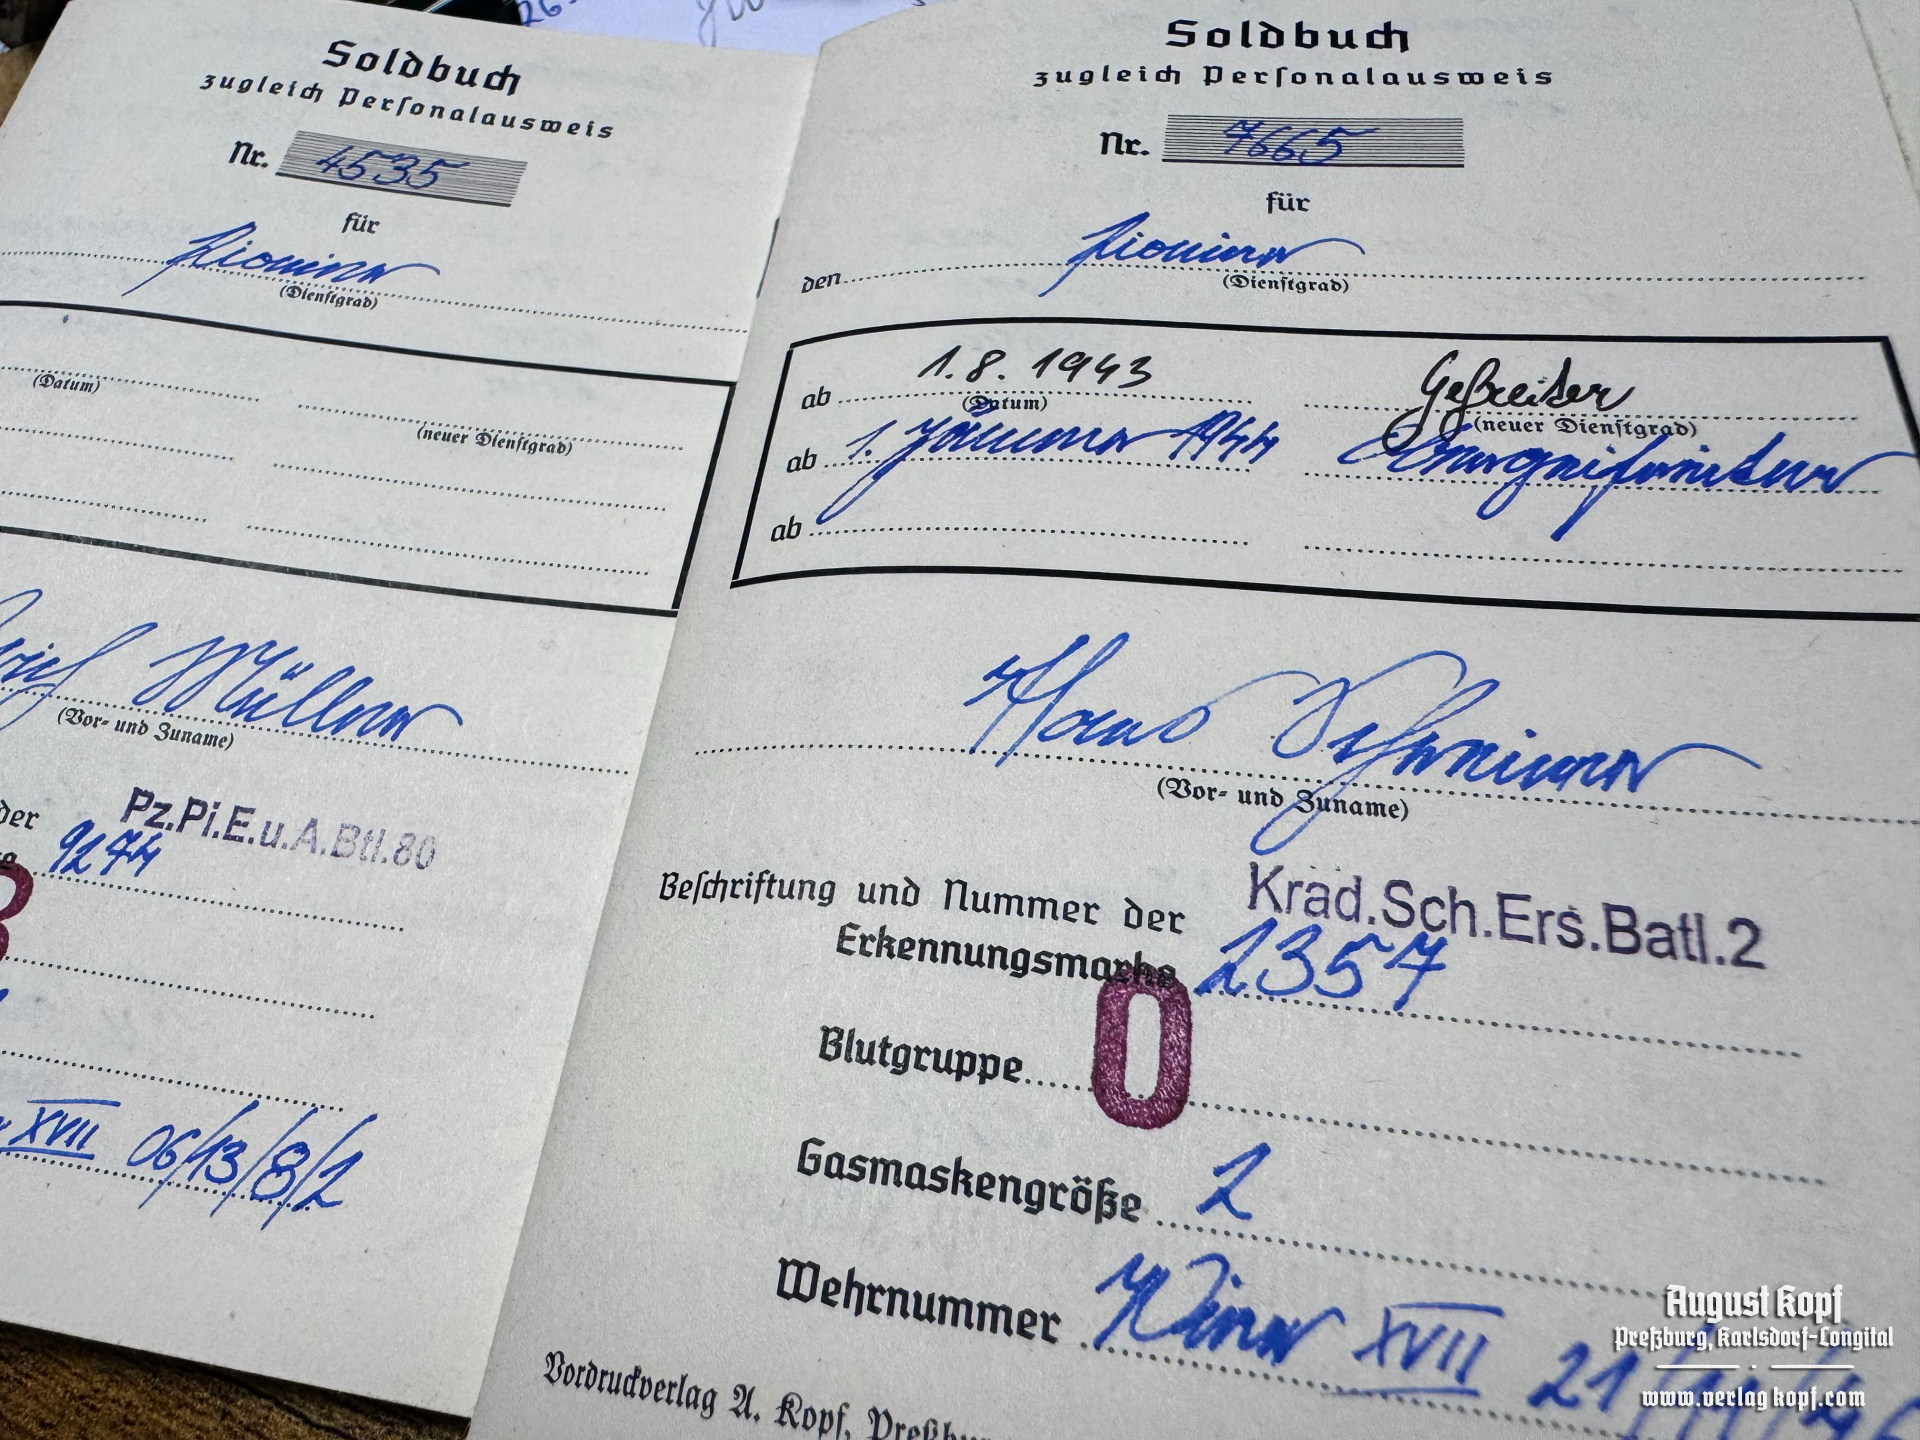 26.
Soldbuch
zugleich Personalausweis
Nr. 4535
für
Pionier
(Dienstgrad)
(Datum)
(neuer Dienstgrad)
Müller
(Vor- und Zuname)
der
Pz.Pi.E.u.A.Btl.80
9274
XVII 06/13/8/2
Soldbuch
zugleich Personalausweis
Nr. 7665
für
den Pionier
(Dienstgrad)
ab 1.8.1943 Gefreiter
(Datum) (neuer Dienstgrad)
ab 1. Jänner 1944
ab
Hans Schreiner
(Vor- und Zuname)
Krad.Sch.Ers.Batl.2
Beschriftung und Nummer der
Erkennungsmarke 2357
Blutgruppe 0
Gasmaskengröße 2
Wehrnummer Wien XVII 21
Vordruckverlag A. Kopf, Preßbu
August Kopf
Preßburg, Karlsdorf-Longital
www.verlagkopf.com